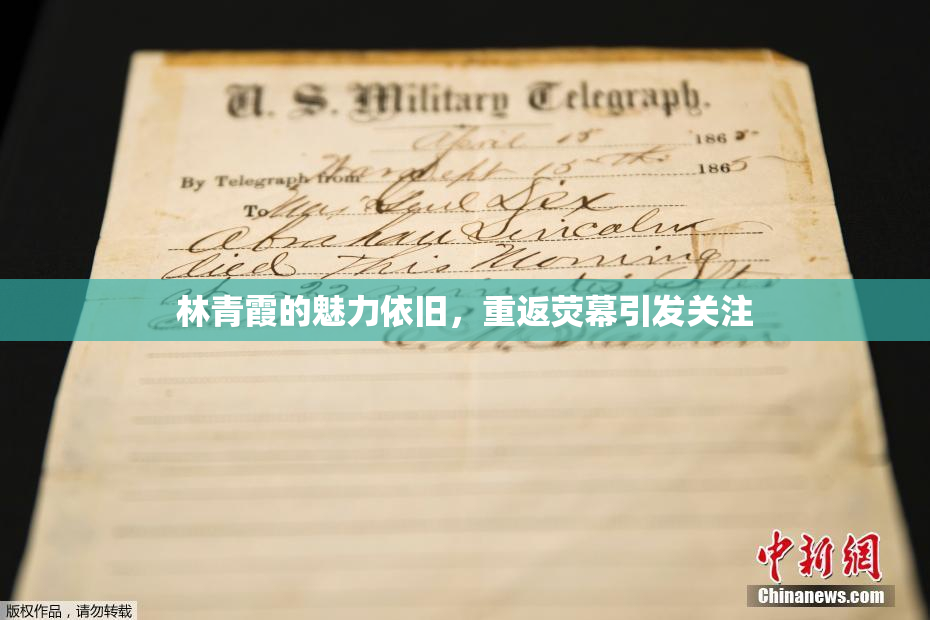 U. S. Military Telegraph.
April 15 1865
By Telegraph from War Dept 15th 1865
To Maj Genl Dix
Abraham Lincoln
died This Morning
at 22 minutes after
林青霞的魅力依旧，重返荧幕引发关注
E. M. Stanton
中新网
Chinanews.com
版权作品，请勿转载